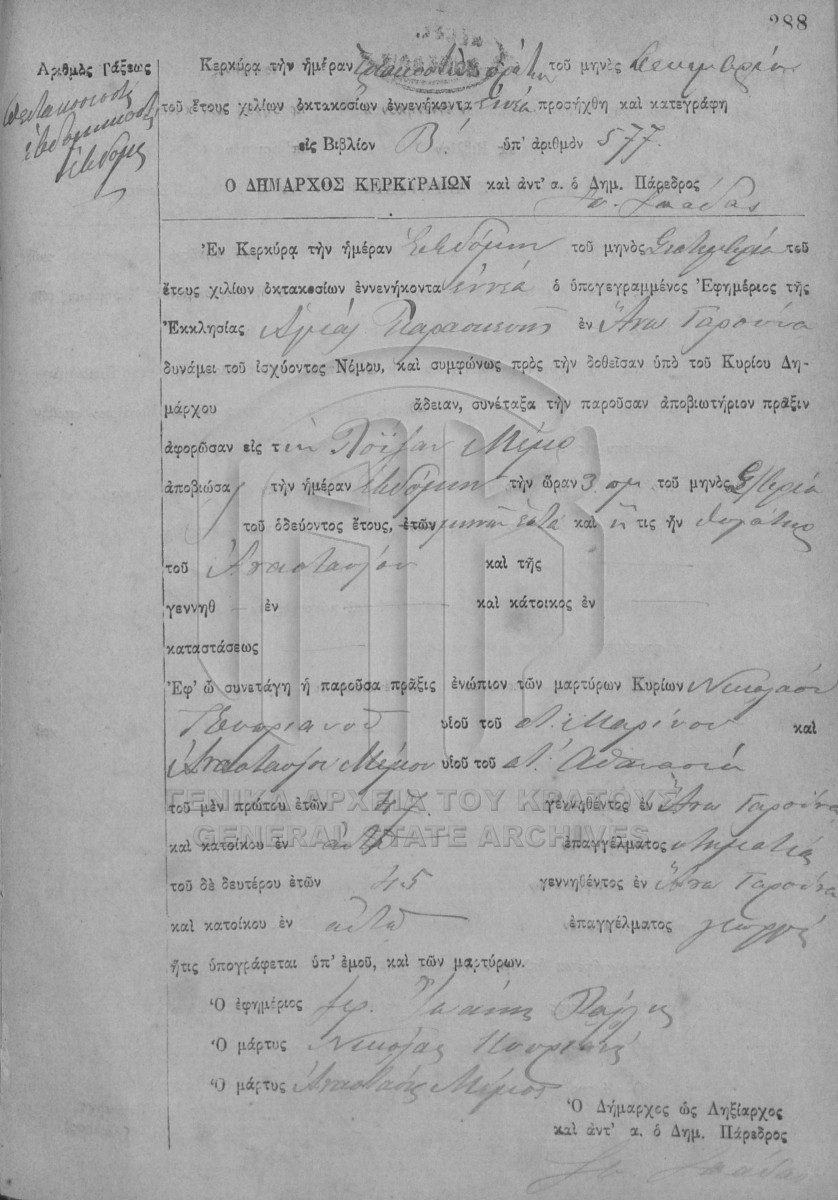 288
Ἀριθμὸς Τάξεως
πεντακοσιοστὸς
ἑβδομηκοστὸς
ἕβδομος
Κερκύρα τὴν ἡμέραν τοῦ μηνὸς
τοῦ ἔτους χιλίων ὀκτακοσίων ἐννενήκοντα ἐννέα προσήχθη καὶ κατεγράφη
εἰς Βιβλίον Β΄. ὑπ' ἀριθμὸν 577.
Ο ΔΗΜΑΡΧΟΣ ΚΕΡΚΥΡΑΙΩΝ καὶ ἀντ' α. ὁ Δημ. Πάρεδρος
Ἐν Κερκύρᾳ τὴν ἡμέραν ἑβδόμην τοῦ μηνὸς Σεπτεμβρίου τοῦ
ἔτους χιλίων ὀκτακοσίων ἐννενήκοντα ἐννέα ὁ ὑπογεγραμμένος Ἐφημέριος τῆς
Ἐκκλησίας Ἁγίας Παρασκευῆς ἐν Ἄνω Γαρούνα
δυνάμει τοῦ ἰσχύοντος Νόμου, καὶ συμφώνως πρὸς τὴν δοθεῖσαν ὑπὸ τοῦ Κυρίου Δη-
μάρχου ἄδειαν, συνέταξα τὴν παροῦσαν ἀποβιωτήριον πρᾶξιν
ἀφορῶσαν εἰς τὴν Λοΐζαν Μίμο
ἀποβιώσα τὴν ἡμέραν ἑβδόμην τὴν ὥραν 3 πμ τοῦ μηνὸς 7/βρίου
τοῦ ὁδεύοντος ἔτους, ἐτῶν μηνῶν ἑπτὰ καὶ ἥ τις ἦν θυγάτηρ
τοῦ Ἀναστασίου καὶ τῆς
γεννηθ ἐν καὶ κάτοικος ἐν
καταστάσεως
Ἐφ' ᾧ συνετάγη ἡ παροῦσα πρᾶξις ἐνώπιον τῶν μαρτύρων Κυρίων Νικολάου
υἱοῦ τοῦ Μαρίνου καὶ
Ἀναστασίου Μίμου υἱοῦ τοῦ Ἀθανασίου
ΓΕΝΙΚΑ ΑΡΧΕΙΑ ΤΟΥ ΚΡΑΤΟΥΣ
τοῦ μὲν πρώτου ἐτῶν 47. γεννηθέντος ἐν Ἄνω Γαρούνα
GENERAL STATE ARCHIVES
καὶ κατοίκου ἐν αὐτῷ ἐπαγγέλματος κτηματίας
τοῦ δὲ δευτέρου ἐτῶν 45 γεννηθέντος ἐν Ἄνω Γαρούνα
καὶ κατοίκου ἐν αὐτῷ ἐπαγγέλματος γεωργὸς
ἥτις ὑπογράφεται ὑπ' ἐμοῦ, καὶ τῶν μαρτύρων.
Ὁ ἐφημέριος Ἰωάννης
Ὁ μάρτυς Νικόλας
Ὁ μάρτυς Ἀναστάσης Μίμος
Ὁ Δήμαρχος ὡς Ληξίαρχος
καὶ ἀντ' α. ὁ Δημ. Πάρεδρος